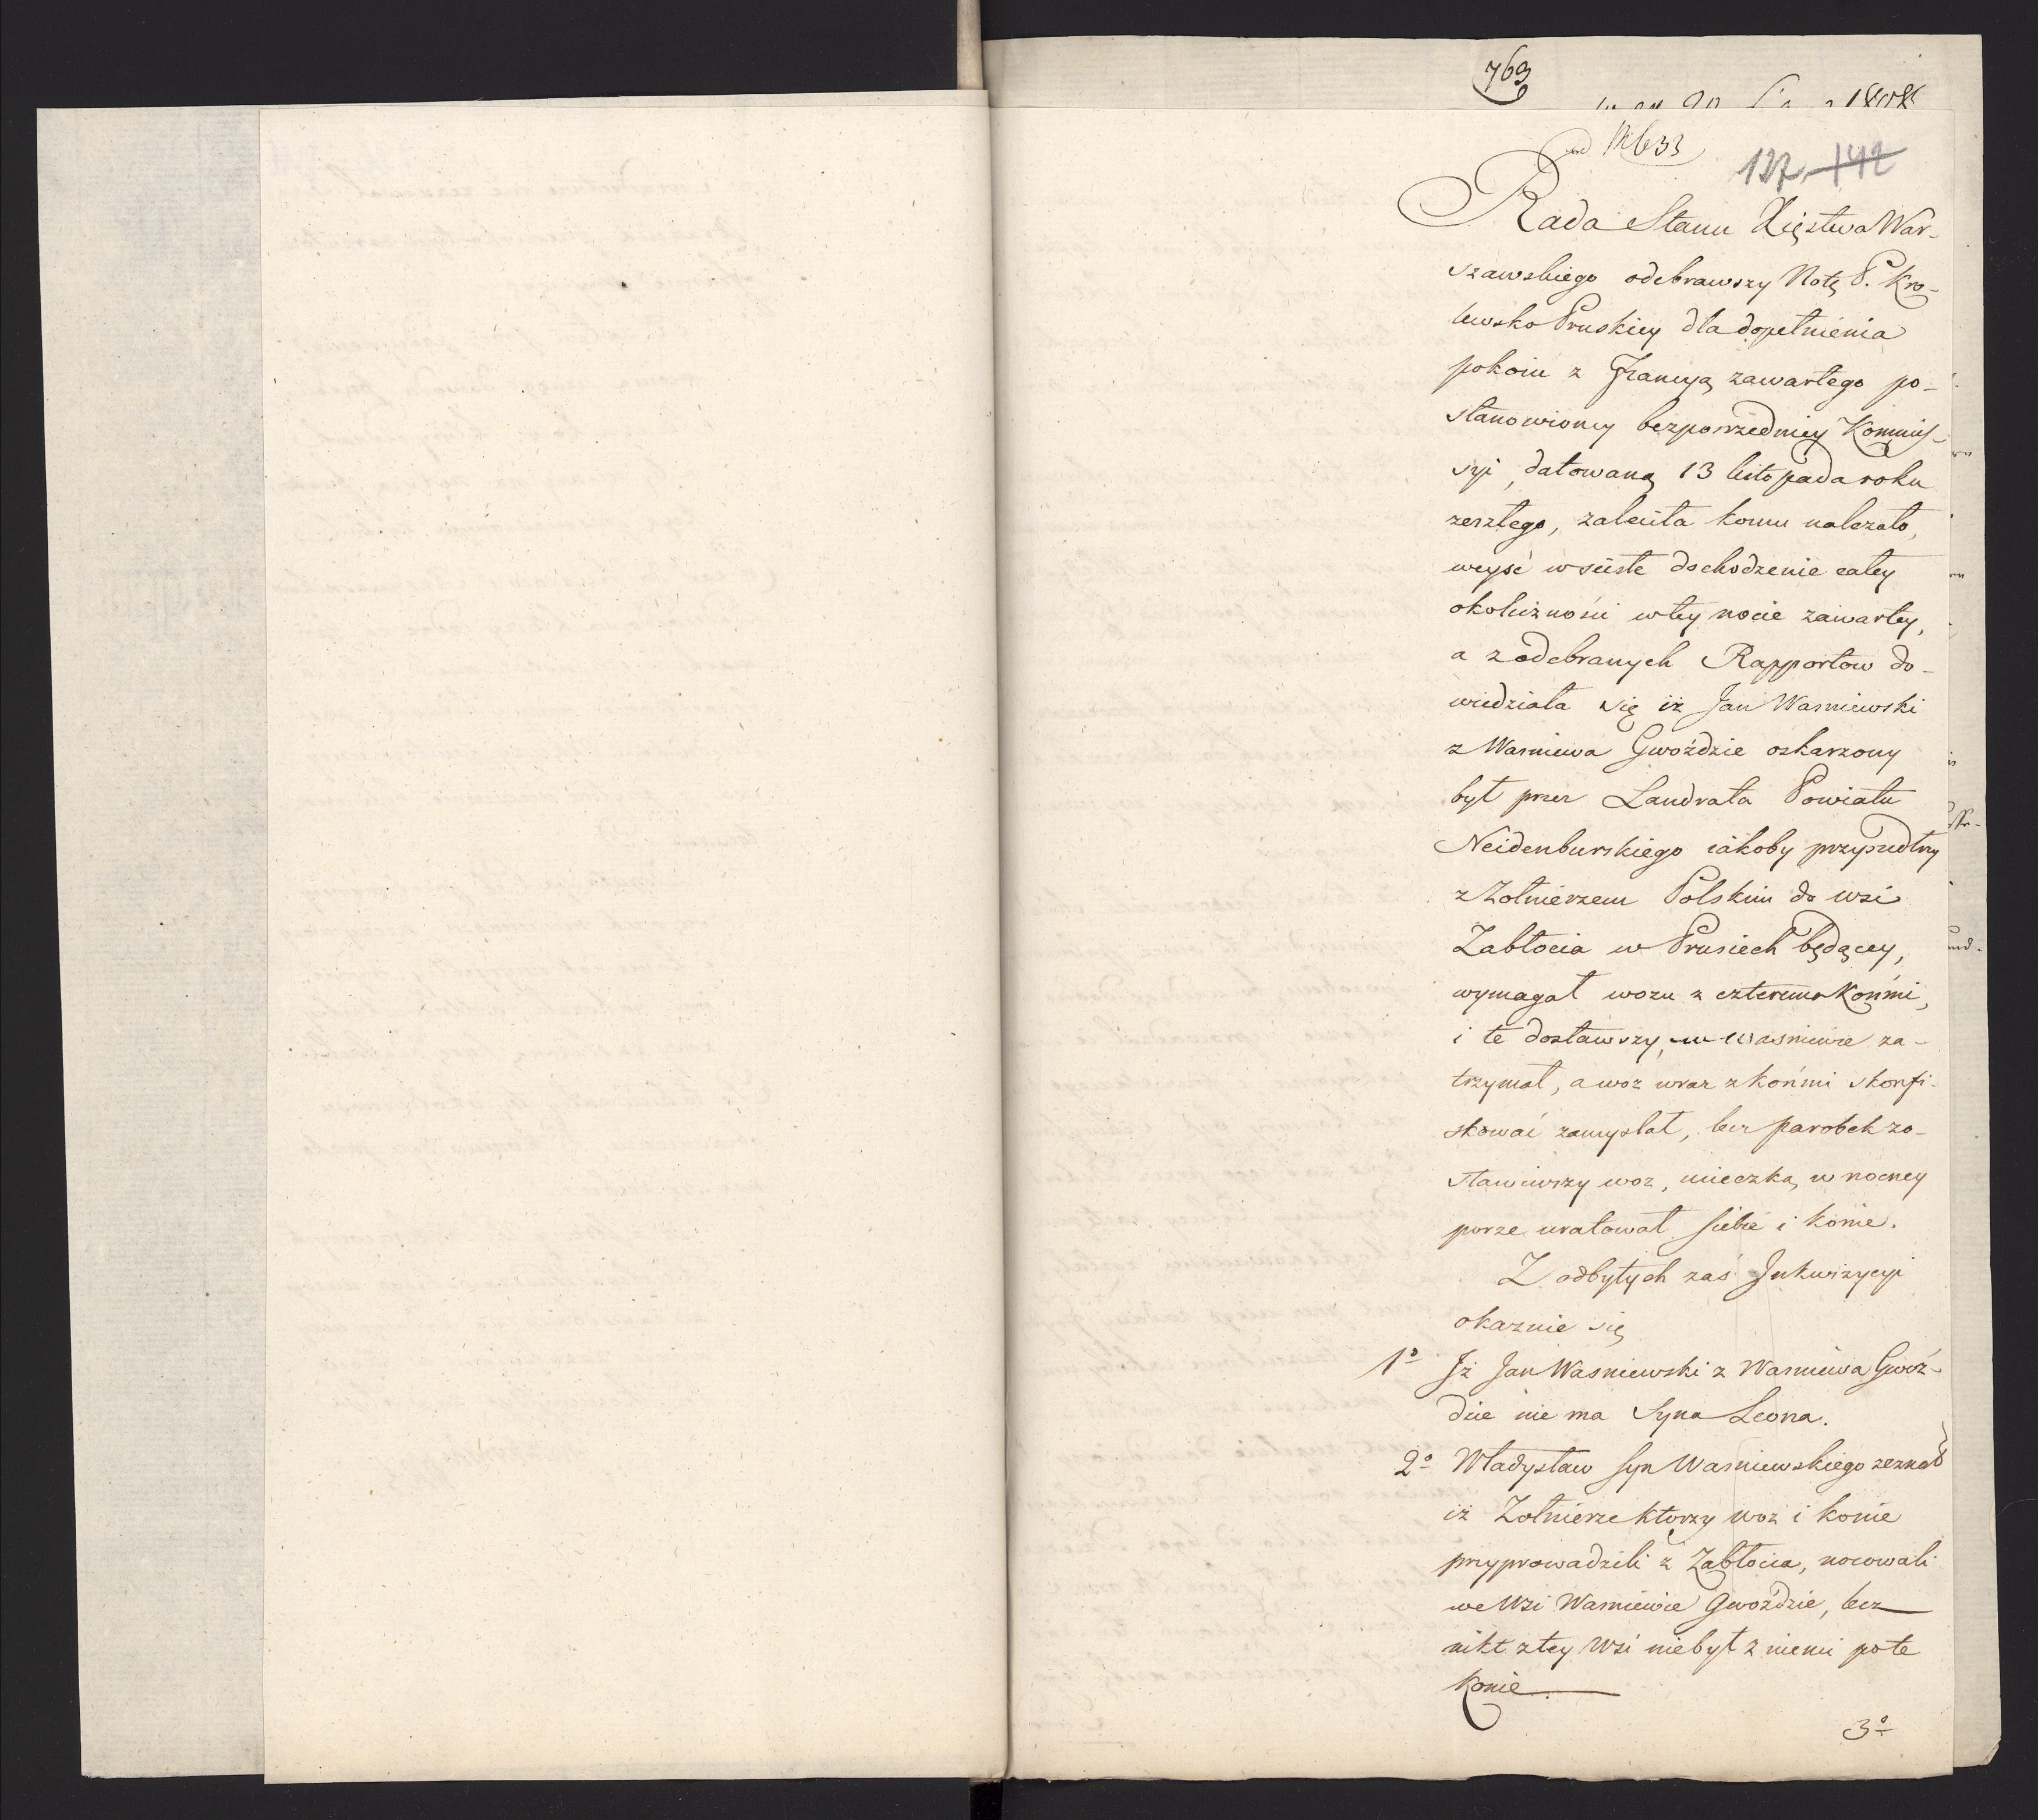 763
1808
ad N 633
127. 142
Rada Stanu Xięstwa War-
szawskiego odebrawszy Notę P. Kro-
lewsko Pruskiey dla dopełnienia
pokoiu z Francyą zawartego po-
stanowioney bezposrzedniey Kommis-
syi, datowaną 13 listopada roku
zeszłego, zaleciła komu nalezało,
weysć w scisłe dochodzenie całey
okolicznosci w tey nocie zawartey,
a z odebranych Rapportow do-
wiedziała się iż Jan Wasniewski
z Wasniewa Gwoździe oskarzony
był przez Landrata Powiatu
Neidenburskiego iakoby przyszedłszy
z Zołnierzem Polskim do wsi
Zabłocia w Prusiech będącey,
wymagał wozu z czterema Końmi,
i te dostawszy, w Wasniewie za-
trzymał, a woz wraz z końmi skonfi-
skować zamyslał, lecz parobek zo-
stawiwszy woz, ucieczką w nocney
porze uratował siebie i konie.
Z odbytych zaś Inkwizycyi
okazuie się
1o Iż Jan Wasniewski z Wasniewa Gwoź-
dzie nie ma Syna Leona.
2o Władysław syn Wasniewskiego zeznał
iż Zołnierze ktorzy woz i konie
przyprowadzili z Zabłocia, nocowali
we Wsi Wasniewie Gwoździe, lecz
nikt z tey Wsi nie był z niemi po te
Konie
3o